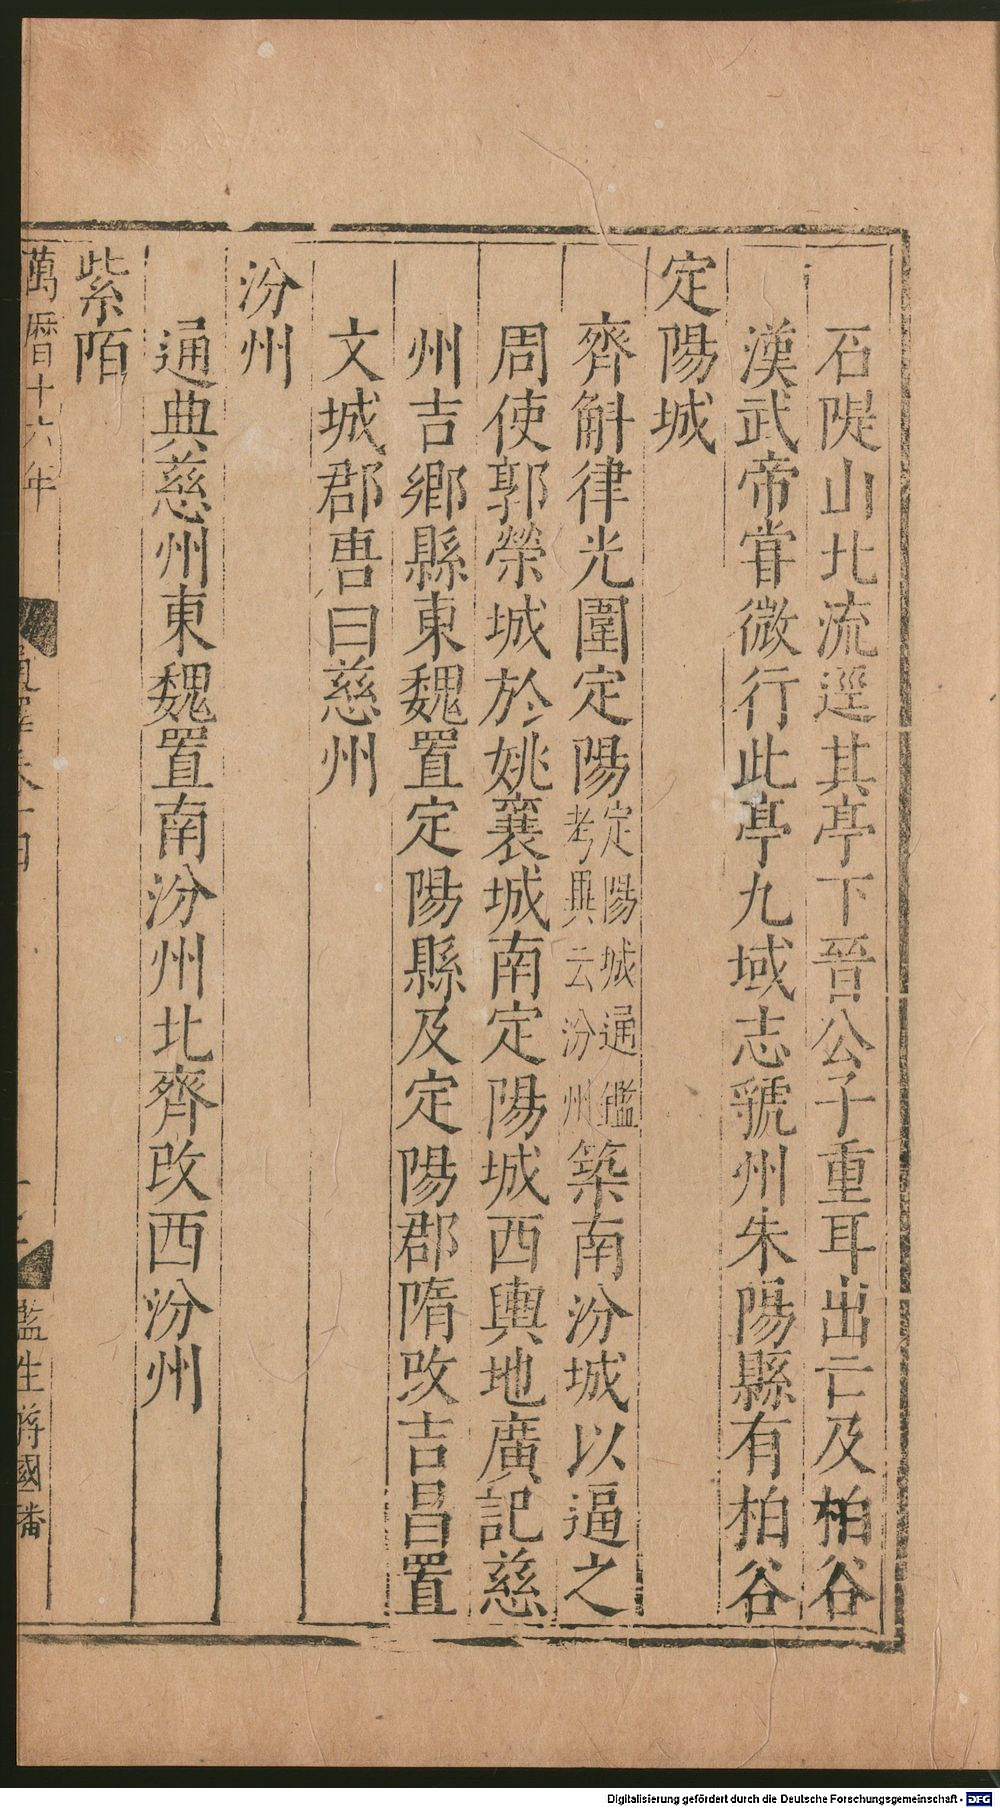 石隄山北流逕其亭下晉公子重耳出亡及柏谷
漢武帝甞微行此亭九域志虢州朱陽縣有柏谷
定陽城
齊斛律光圍定陽定陽城通鑑考異云汾州築南汾城以逼之
周使郭榮城於姚襄城南定陽城西輿地廣記慈
州吉鄉縣東魏置定陽縣及定陽郡隋改吉昌置
文城郡唐曰慈州
汾州
通典慈州東魏置南汾州北齊改西汾州
紫陌
萬曆十六年
監生蔣國
Digitalisierung gefördert durch die Deutsche Forschungsgemeinschaft - DFG